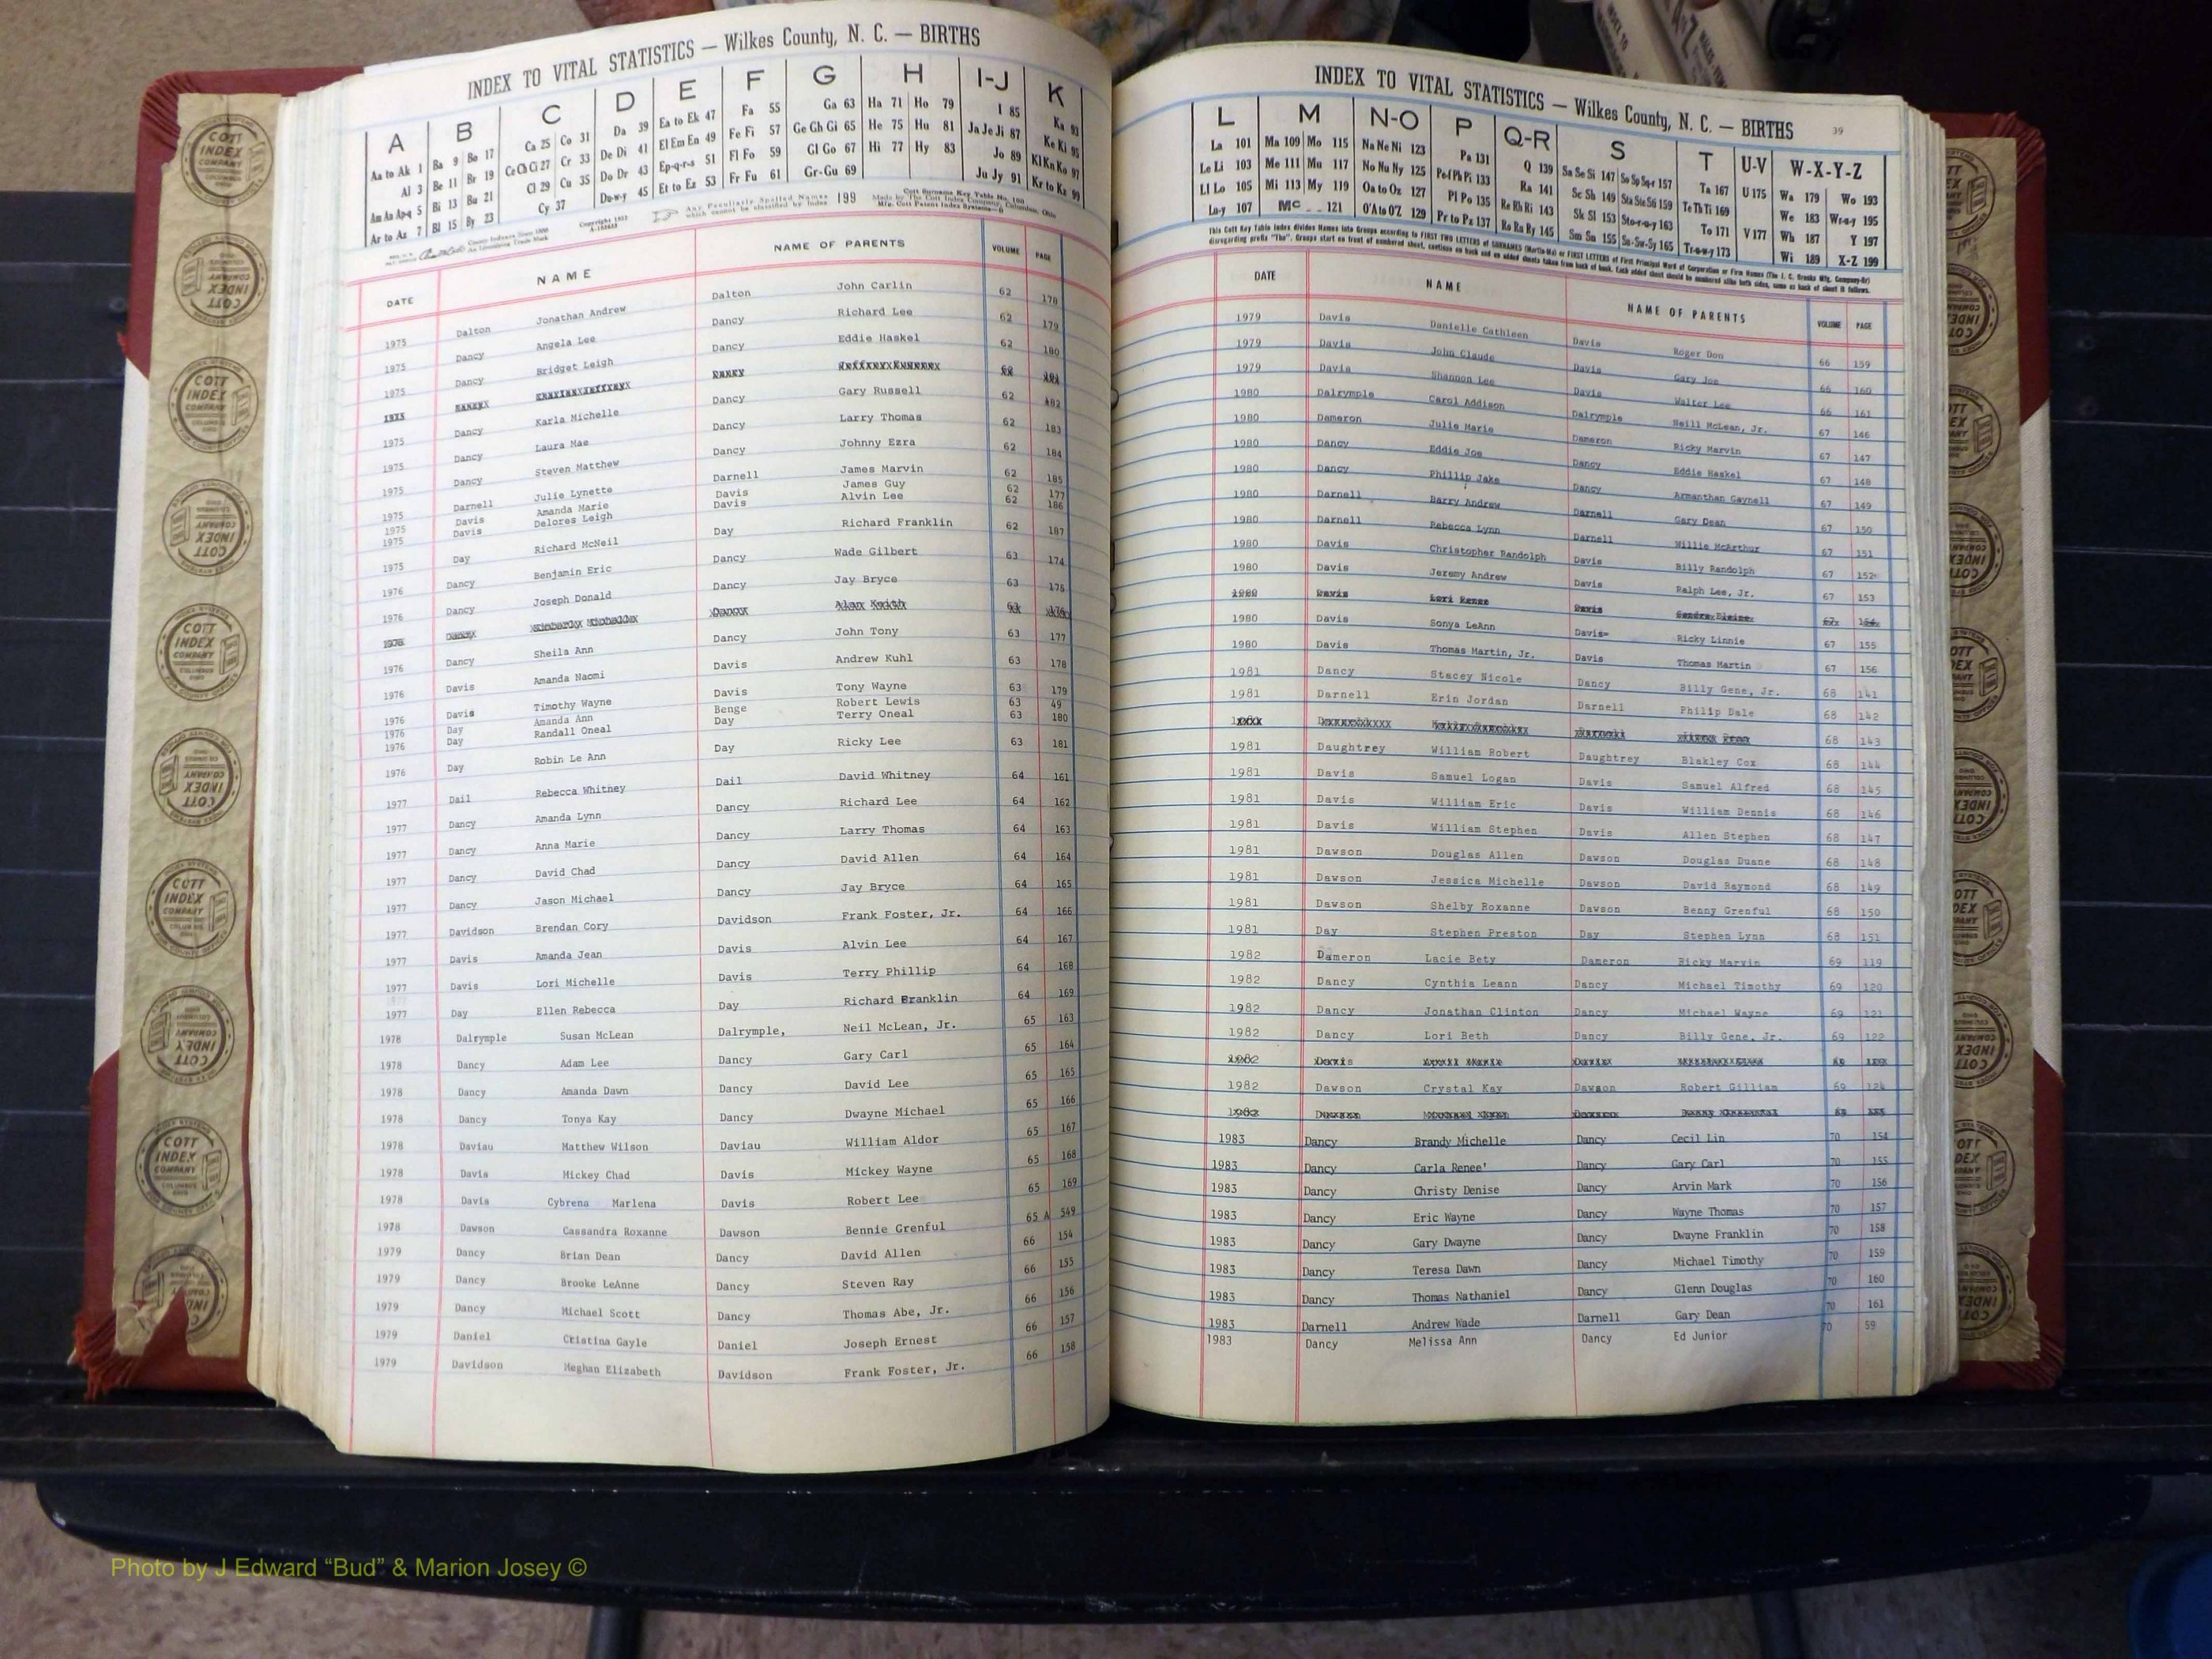 INDEX TO VITAL STATISTICS — Wilkes County, N. C. — BIRTHS
A B C D E F G H I-J K
Aa to Ak 1 Ba 9 Bo 17 Ca 25 Co 31 Da 39 Ea to Ek 47 Fa 55 Ga 63 Ha 71 Ho 79 I 85 Ka 93
Al 3 Be 11 Br 19 Ce Ch Ci 27 Cr 33 De Di 41 El Em En 49 Fe Fi 57 Ge Gh Gi 65 He 75 Hu 81 Ja Je Ji 87 Ke Ki 95
Am An Ap-q 5 Bi 13 Bu 21 Cl 29 Cu 35 Do Dr 43 Ep-q-r-s 51 Fl Fo 59 Gl Go 67 Hi 77 Hy 83 Jo 89 Kl Kn Ko 97
Ar to Az 7 Bl 15 By 23 Cy 37 Du-w-y 45 Et to Ez 53 Fr Fu 61 Gr-Gu 69 Ju Jy 91 Kr to Kz 99
Any Peculiarly Spelled Names which cannot be classified by Index 199
Cott Surname Key Table No. 100
Made by The Cott Index Company, Columbus, Ohio
DATE NAME NAME OF PARENTS VOLUME PAGE
1975 Dalton Jonathan Andrew Dalton John Carlin 62 178
1975 Dancy Angela Lee Dancy Richard Lee 62 179
1975 Dancy Bridget Leigh Dancy Eddie Haskel 62 180
1975
1975 Dancy Karla Michelle Dancy Gary Russell 62 182
1975 Dancy Laura Mae Dancy Larry Thomas 62 183
1975 Dancy Steven Matthew Dancy Johnny Ezra 62 184
1975 Darnell Julie Lynette Darnell James Marvin 62 185
1975 Davis Amanda Marie Davis James Guy 62 177
1975 Davis Delores Leigh Davis Alvin Lee 62 186
1975 Day Richard McNeil Day Richard Franklin 62 187
1976 Dancy Benjamin Eric Dancy Wade Gilbert 63 174
1976 Dancy Joseph Donald Dancy Jay Bryce 63 175
1976 Dancy Dancy Alan Keith 176
1976 Dancy Sheila Ann Dancy John Tony 63 177
1976 Davis Amanda Naomi Davis Andrew Kuhl 63 178
1976 Davis Timothy Wayne Davis Tony Wayne 63 179
1976 Day Amanda Ann Benge Robert Lewis 63 49
1976 Day Randall Oneal Day Terry Oneal 63 180
1976 Day Robin Le Ann Day Ricky Lee 63 181
1977 Dail Rebecca Whitney Dail David Whitney 64 161
1977 Dancy Amanda Lynn Dancy Richard Lee 64 162
1977 Dancy Anna Marie Dancy Larry Thomas 64 163
1977 Dancy David Chad Dancy David Allen 64 164
1977 Dancy Jason Michael Dancy Jay Bryce 64 165
1977 Davidson Brendan Cory Davidson Frank Foster, Jr. 64 166
1977 Davis Amanda Jean Davis Alvin Lee 64 167
1977 Davis Lori Michelle Davis Terry Phillip 64 168
1977 Day Ellen Rebecca Day Richard Franklin 64 169
1978 Dalrymple Susan McLean Dalrymple, Neil McLean, Jr. 65 163
1978 Dancy Adam Lee Dancy Gary Carl 65 164
1978 Dancy Amanda Dawn Dancy David Lee 65 165
1978 Dancy Tonya Kay Dancy Dwayne Michael 65 166
1978 Daviau Matthew Wilson Daviau William Aldor 65 167
1978 Davis Mickey Chad Davis Mickey Wayne 65 168
1978 Davis Cybrena Marlena Davis Robert Lee 65 169
1978 Dawson Cassandra Roxanne Dawson Bennie Grenful 65 A 549
1979 Dancy Brian Dean Dancy David Allen 66 154
1979 Dancy Brooke LeAnne Dancy Steven Ray 66 155
1979 Dancy Michael Scott Dancy Thomas Abe, Jr. 66 156
1979 Daniel Cristina Gayle Daniel Joseph Ernest 66 157
1979 Davidson Meghan Elizabeth Davidson Frank Foster, Jr. 66 158
INDEX TO VITAL STATISTICS — Wilkes County, N. C. — BIRTHS 39
L M N-O P Q-R S T U-V W-X-Y-Z
La 101 Ma 109 Mo 115 Na Ne Ni 123 Pa 131 Q 139 Sa Se Si 147 So Sp Sq-r 157 Ta 167 U 175 Wa 179 Wo 193
Le Li 103 Me 111 Mu 117 No Nu Ny 125 Pe-f Ph Pi 133 Ra 141 Sc Sh 149 Sta Ste Sti 159 Te Th Ti 169 We 183 Wr-u-y 195
Ll Lo 105 Mi 113 My 119 Oa to Oz 127 Pl Po 135 Re Rh Ri 143 Sk Sl 153 Sto-r-u-y 163 To 171 V 177 Wh 187 Y 197
Lu-y 107 Mc 121 O'A to O'Z 129 Pr to Pz 137 Ro Ru Ry 145 Sm Sn 155 Su-Sw-Sy 165 Tr-u-w-y 173 Wi 189 X-Z 199
This Cott Key Table Index divides Names into Groups according to FIRST TWO LETTERS of SURNAMES (Martin-Ma) or FIRST LETTERS of First Principal Word of Corporation or Firm Names (The J. C. Brooks Mfg. Company-Br)
disregarding prefix "The". Groups start on front of numbered sheet, continue on back and on added sheets taken from back of book. Each added sheet should be numbered alike both sides, same as back of sheet it follows.
DATE NAME NAME OF PARENTS VOLUME PAGE
1979 Davis Danielle Cathleen Davis Roger Don 66 159
1979 Davis John Claude Davis Gary Joe 66 160
1979 Davis Shannon Lee Davis Walter Lee 66 161
1980 Dalrymple Carol Addison Dalrymple Neill McLean, Jr. 67 146
1980 Dameron Julie Marie Dameron Ricky Marvin 67 147
1980 Dancy Eddie Joe Dancy Eddie Haskel 67 148
1980 Dancy Phillip Jake Dancy Armanthan Gaynell 67 149
1980 Darnell Barry Andrew Darnell Gary Dean 67 150
1980 Darnell Rebecca Lynn Darnell Willie McArthur 67 151
1980 Davis Christopher Randolph Davis Billy Randolph 67 152
1980 Davis Jeremy Andrew Davis Ralph Lee, Jr. 67 153
1980 Davis Lori Renee Davis
1980 Davis Sonya LeAnn Davis Ricky Linnie 67 155
1980 Davis Thomas Martin, Jr. Davis Thomas Martin 67 156
1981 Dancy Stacey Nicole Dancy Billy Gene, Jr. 68 141
1981 Darnell Erin Jordan Darnell Philip Dale 68 142
68 143
1981 Daughtrey William Robert Daughtrey Blakley Cox 68 144
1981 Davis Samuel Logan Davis Samuel Alfred 68 145
1981 Davis William Eric Davis William Dennis 68 146
1981 Davis William Stephen Davis Allen Stephen 68 147
1981 Dawson Douglas Allen Dawson Douglas Duane 68 148
1981 Dawson Jessica Michelle Dawson David Raymond 68 149
1981 Dawson Shelby Roxanne Dawson Benny Grenful 68 150
1981 Day Stephen Preston Day Stephen Lynn 68 151
1982 Dameron Lacie Bety Dameron Ricky Marvin 69 119
1982 Dancy Cynthia Leann Dancy Michael Timothy 69 120
1982 Dancy Jonathan Clinton Dancy Michael Wayne 69 121
1982 Dancy Lori Beth Dancy Billy Gene, Jr. 69 122
1982
1982 Dawson Crystal Kay Dawson Robert Gilliam 69 124
1983 Dancy Brandy Michelle Dancy Cecil Lin 70 154
1983 Dancy Carla Renee' Dancy Gary Carl 70 155
1983 Dancy Christy Denise Dancy Arvin Mark 70 156
1983 Dancy Eric Wayne Dancy Wayne Thomas 70 157
1983 Dancy Gary Dwayne Dancy Dwayne Franklin 70 158
1983 Dancy Teresa Dawn Dancy Michael Timothy 70 159
1983 Dancy Thomas Nathaniel Dancy Glenn Douglas 70 160
1983 Darnell Andrew Wade Darnell Gary Dean 70 161
1983 Dancy Melissa Ann Dancy Ed Junior 70 59
COTT INDEX COMPANY
Photo by J Edward “Bud” & Marion Josey ©